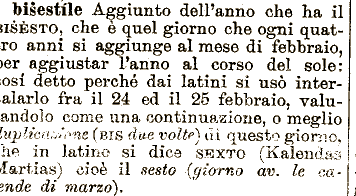 bišestile Aggiunto dell'anno che ha il
BIŠESTO, che è quel giorno che ogni quat-
tro anni si aggiunge al mese di febbraio,
per aggiustar l'anno al corso del sole:
così detto perché dai latini si usò inter-
calarlo fra il 24 ed il 25 febbraio, valu-
tandolo come una continuazione, o meglio
duplicazione (BIS due volte) di questo giorno,
che in latino si dice SEXTO (Kalendas
Martias) cioè il sesto (giorno av. le ca-
lende di marzo).